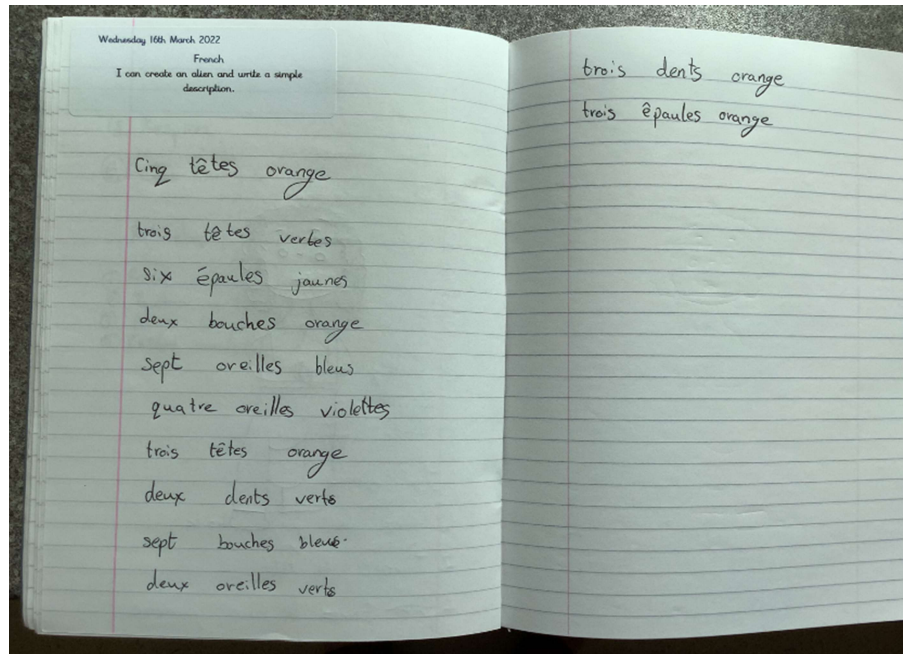 Wednesday 16th March 2022
French
I can create an alien and write a simple
description.
Cinq têtes orange
trois têtes vertes
six épaules jaunes
deux bouches orange
sept oreilles bleus
quatre oreilles violettes
trois têtes orange
deux dents verts
sept bouches bleus.
deux oreilles verts
trois dents orange
trois êpaules orange